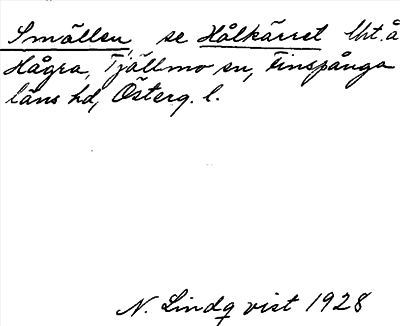 Smällen, se Hålkärret Utt. å
Hågra, Tjällmo sn, Finspånga
läns hd, Österg. l.
N. Lindqvist 1928